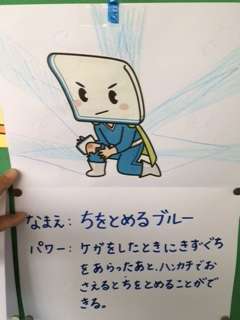 なまえ：ちをとめるブルー
パワー：ケガをしたときにきずぐち
をあらったあと、ハンカチでお
さえるとちをとめることがで
きる。